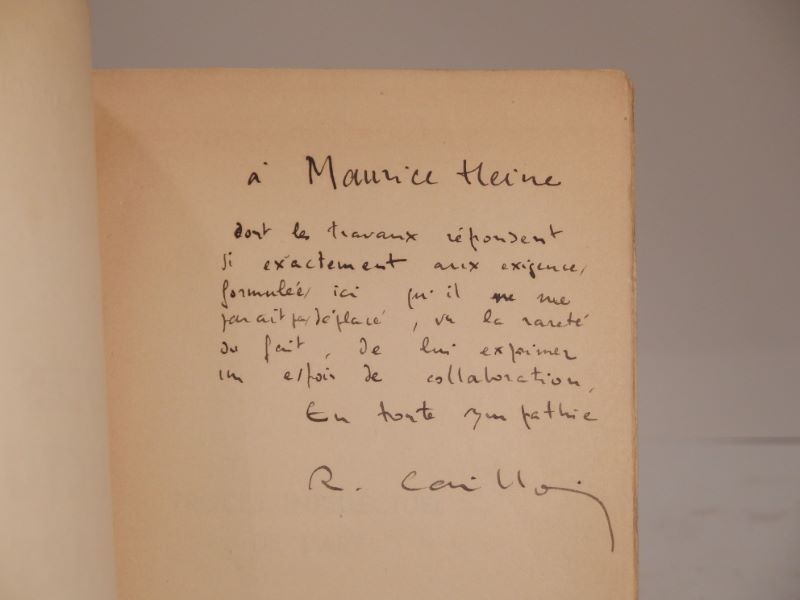 à Maurice Heine
dont les travaux répondent
si exactement aux exigences
formulées ici qu'il ne me
parait pas déplacé, vu la rareté
du fait, de lui exprimer
un espoir de collaboration.
En toute sympathie
R. Caillois